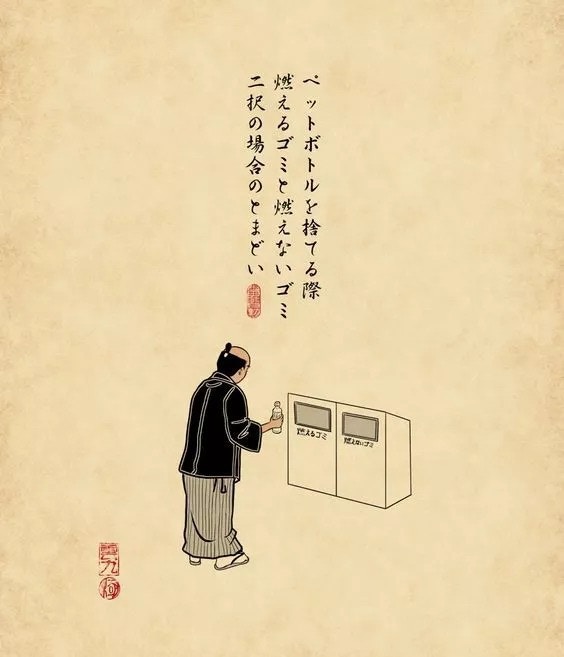 ペットボトルを捨てる際
燃えるゴミと燃えないゴミ
二択の場合のとまどい
燃えるゴミ
燃えないゴミ